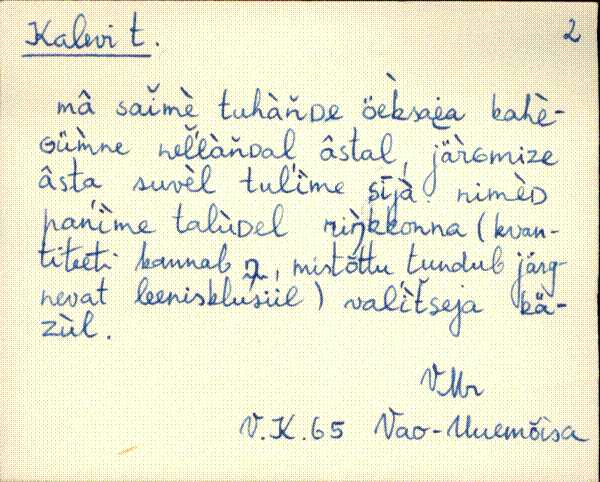 Kalevi t. 2
mâ saĭmè tuhàňDe öèksaᴇa kahè-
Güm̀ne neľľàňDal âstal, järGmize
âsta suvèl tuľìme sījà. nimèD
pańìme talùDel riŋkkonna (kvan-
titeeti kannab ŋ, mistõttu tundub järg-
nevat leenisklusiil) vaľìtšeja kä-
zùl.
VMr
V.K. 65 Vao-Uuemõisa